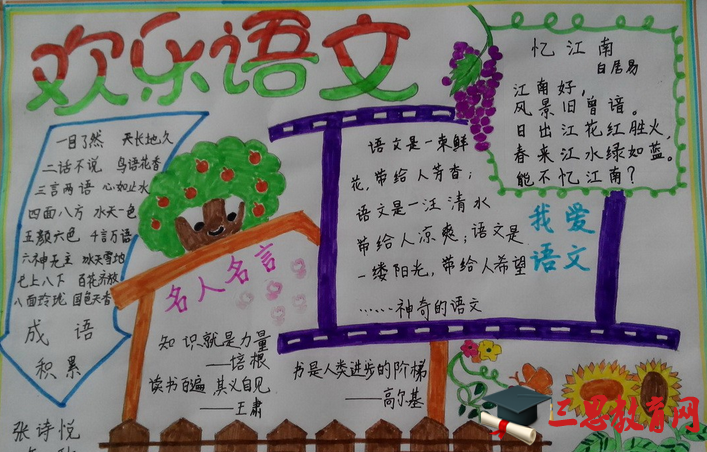 欢乐语文
忆江南
白居易
江南好，
风景旧曾谙。
日出江花红胜火，
春来江水绿如蓝。
能不忆江南？
一目了然 天长地久
二话不说 鸟语花香
三言两语 心如止水
四面八方 水天一色
五颜六色 千言万语
六神无主 冰天雪地
七上八下 百花齐放
八面玲珑 国色天香
成语
积累
语文是一束鲜
花，带给人芳香；
语文是一汪清水
带给人凉爽；语文是
一缕阳光，带给人希望
……神奇的语文
我爱
语文
名人名言
知识就是力量
——培根
读书百遍 其义自见
——王肃
书是人类进步的阶梯
——高尔基
张诗悦
三思教育网